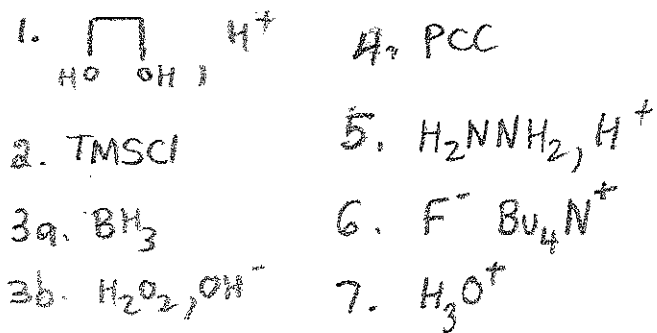 1. HO OH, H+
2. TMSCl
3a. BH3
3b. H2O2, OH-
4. PCC
5. H2NNH2, H+
6. F- Bu4N+
7. H3O+